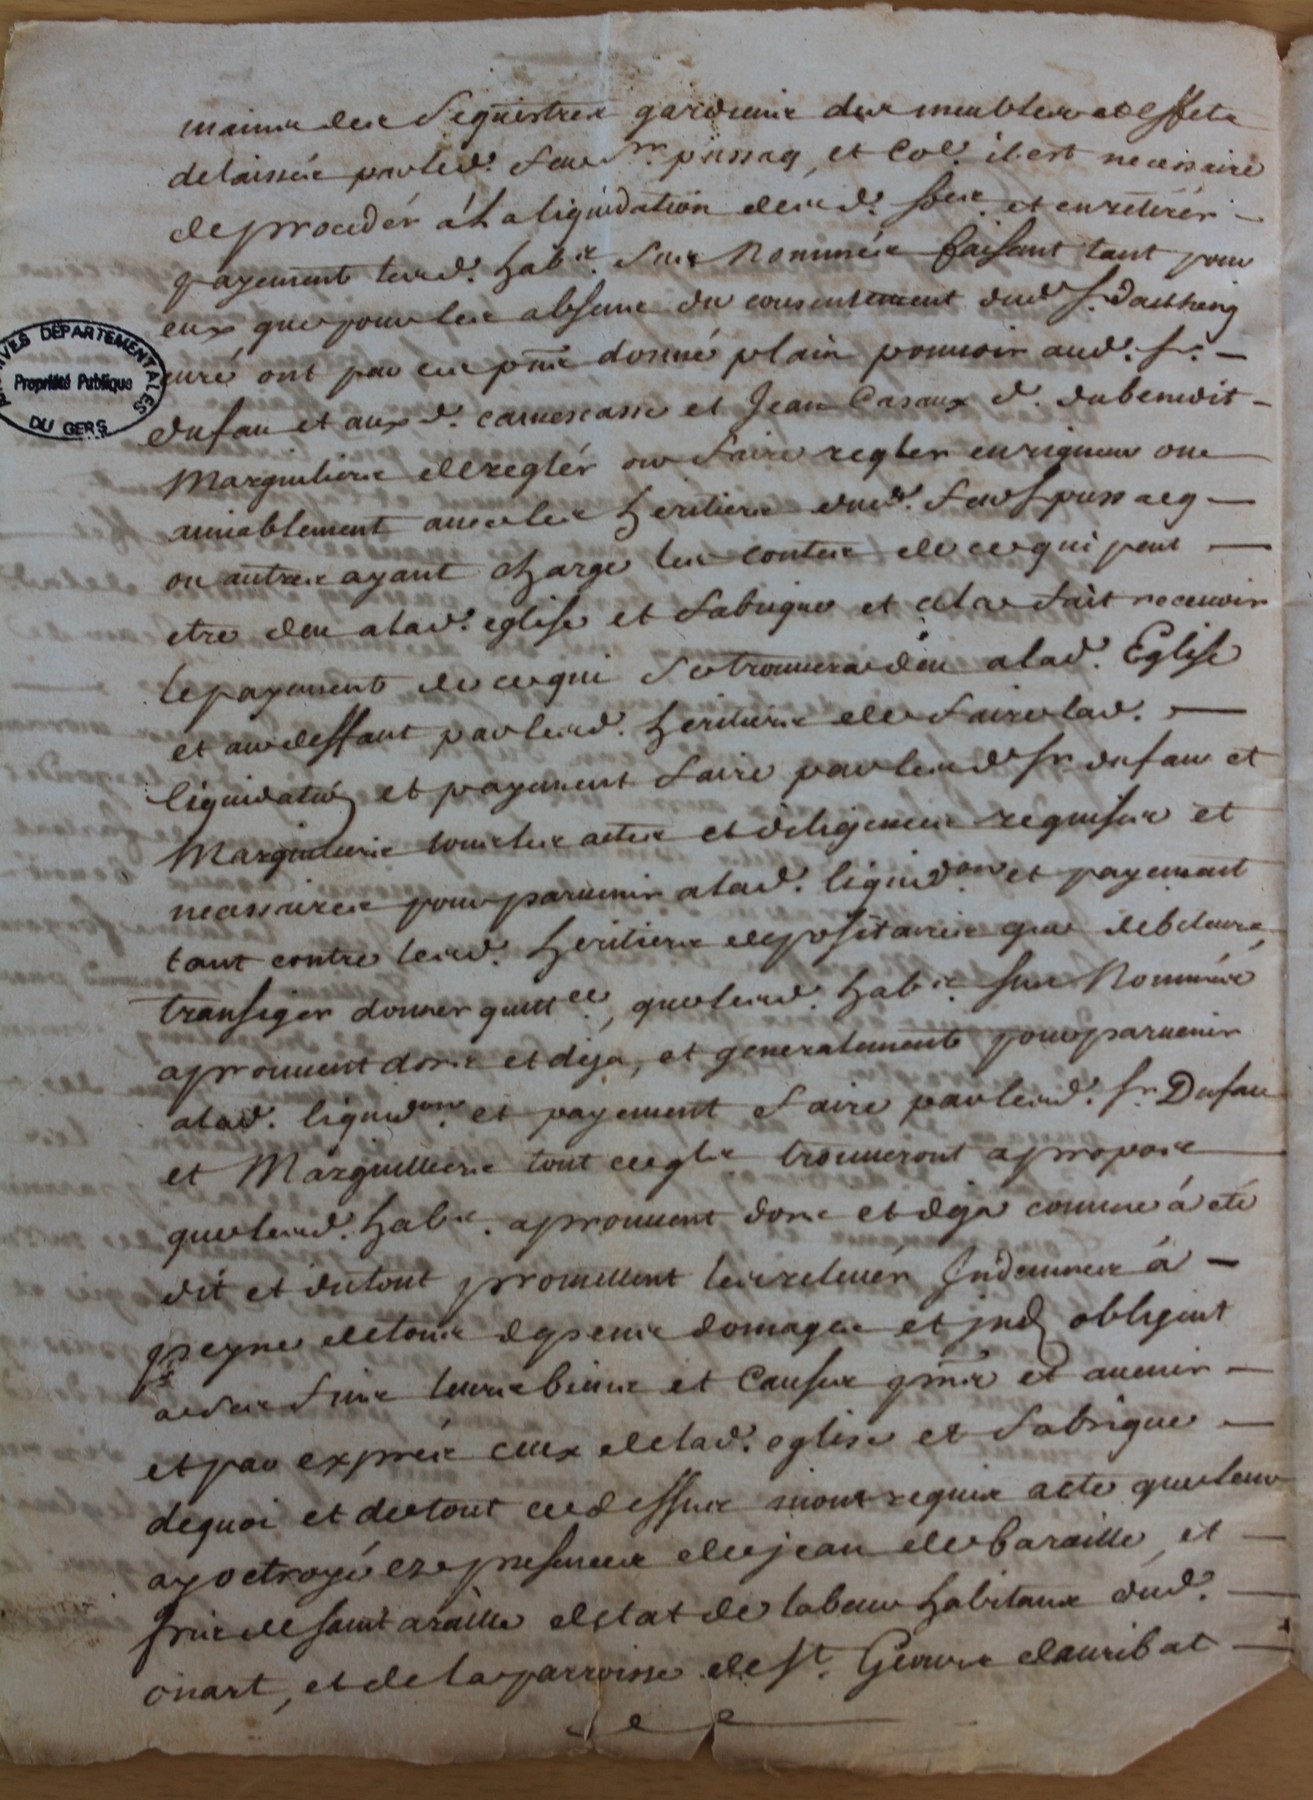 mains des sequestres gardiens des meubles et effets
delaissés par led. feu Sr. pussaq, et Coe. il est necessaire
de proceder á La liquidation desd. soes. et en retirér –
payement lesd. habts. sus Nommés faisant tant pour
eux que pour les absens du consentement dud Sr.
curé ont par ces pntes donné plain pouvoir aud. Sr. –
dufau et aux d. carnescasse et Jean Casaux d. dubenoit –
Marguiliers de reglér ou faire regler en rigueur ou
amiablement avec les heritiers dud. feu Sr pussacq –
ou autres ayant charge les contes de ce qui peut –
etre deu a lad. eglise et fabrique et cela fait recevoir
le payement de ce qui se trouvera deu a lad. Eglise
et au deffaut par lesd. heritiers de faire lad. –
liquidation et payement faire par lesd Sr dufau et
Marguiliers tous les actes et diligences requises et
necessaires pour parvenir a lad. liquidaon et payement
tant contre lesd. heritiers depositaires que debiteurs,
transiger donner quittce, que lesd. habts. sus Nommés
aprouvent dors et deja, et generalement pour parvenir
a lad. liquidaon. et payement faire par lesd. Sr Dufau
et Marguilliers tout ce qls trouveront a propos
que lesd. habts. aprouvent dors et deja comme á eté
dit et du tout promettent les relevér Indemnes á –
peyne de tous depens domages et jnd obligent
a ces fins leurs biens et Causes pntes et avenir –
et par exprés ceux de lad. eglise et fabrique –
de quoi et de tout ce dessus mont requis acte que leur
ay octroyé ez presences de jean de baraille et –
de saint araille de lat de labeur habitans dud.
onart, et de la parroisse de St. Geours dauribat –